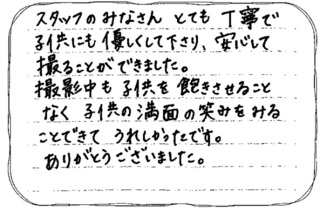 スタッフのみなさん とても 丁寧で
子供にも優しくして下さり、安心して
撮ることができました。
撮影中も子供を飽きさせること
なく 子供の満面の笑みをみる
ことできて うれしかったです。
ありがとうございました。